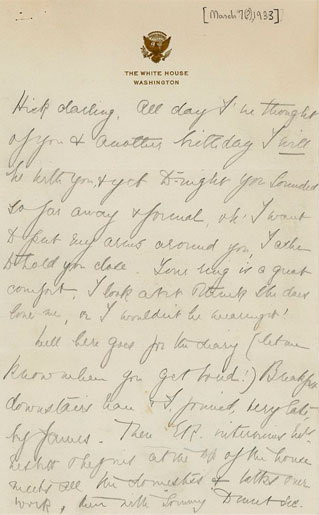 [March 7(?), 1933]
THE WHITE HOUSE
WASHINGTON
Hick darling, All day I've thought
of you & another birthday I will
be with you, & yet to-night you sounded
so far away & formal, oh! I want
to put my arms around you, I ache
to hold you close. Your ring is a great
comfort, I look at it & think she does
love me, or I wouldn't be wearing it!
Well here goes for the diary (let me
know when you get bored!) Breakfast
downstairs & I joined, very late
by James. Then interviews
at the top of the house
meets all the domestics &
work, then with Tommy